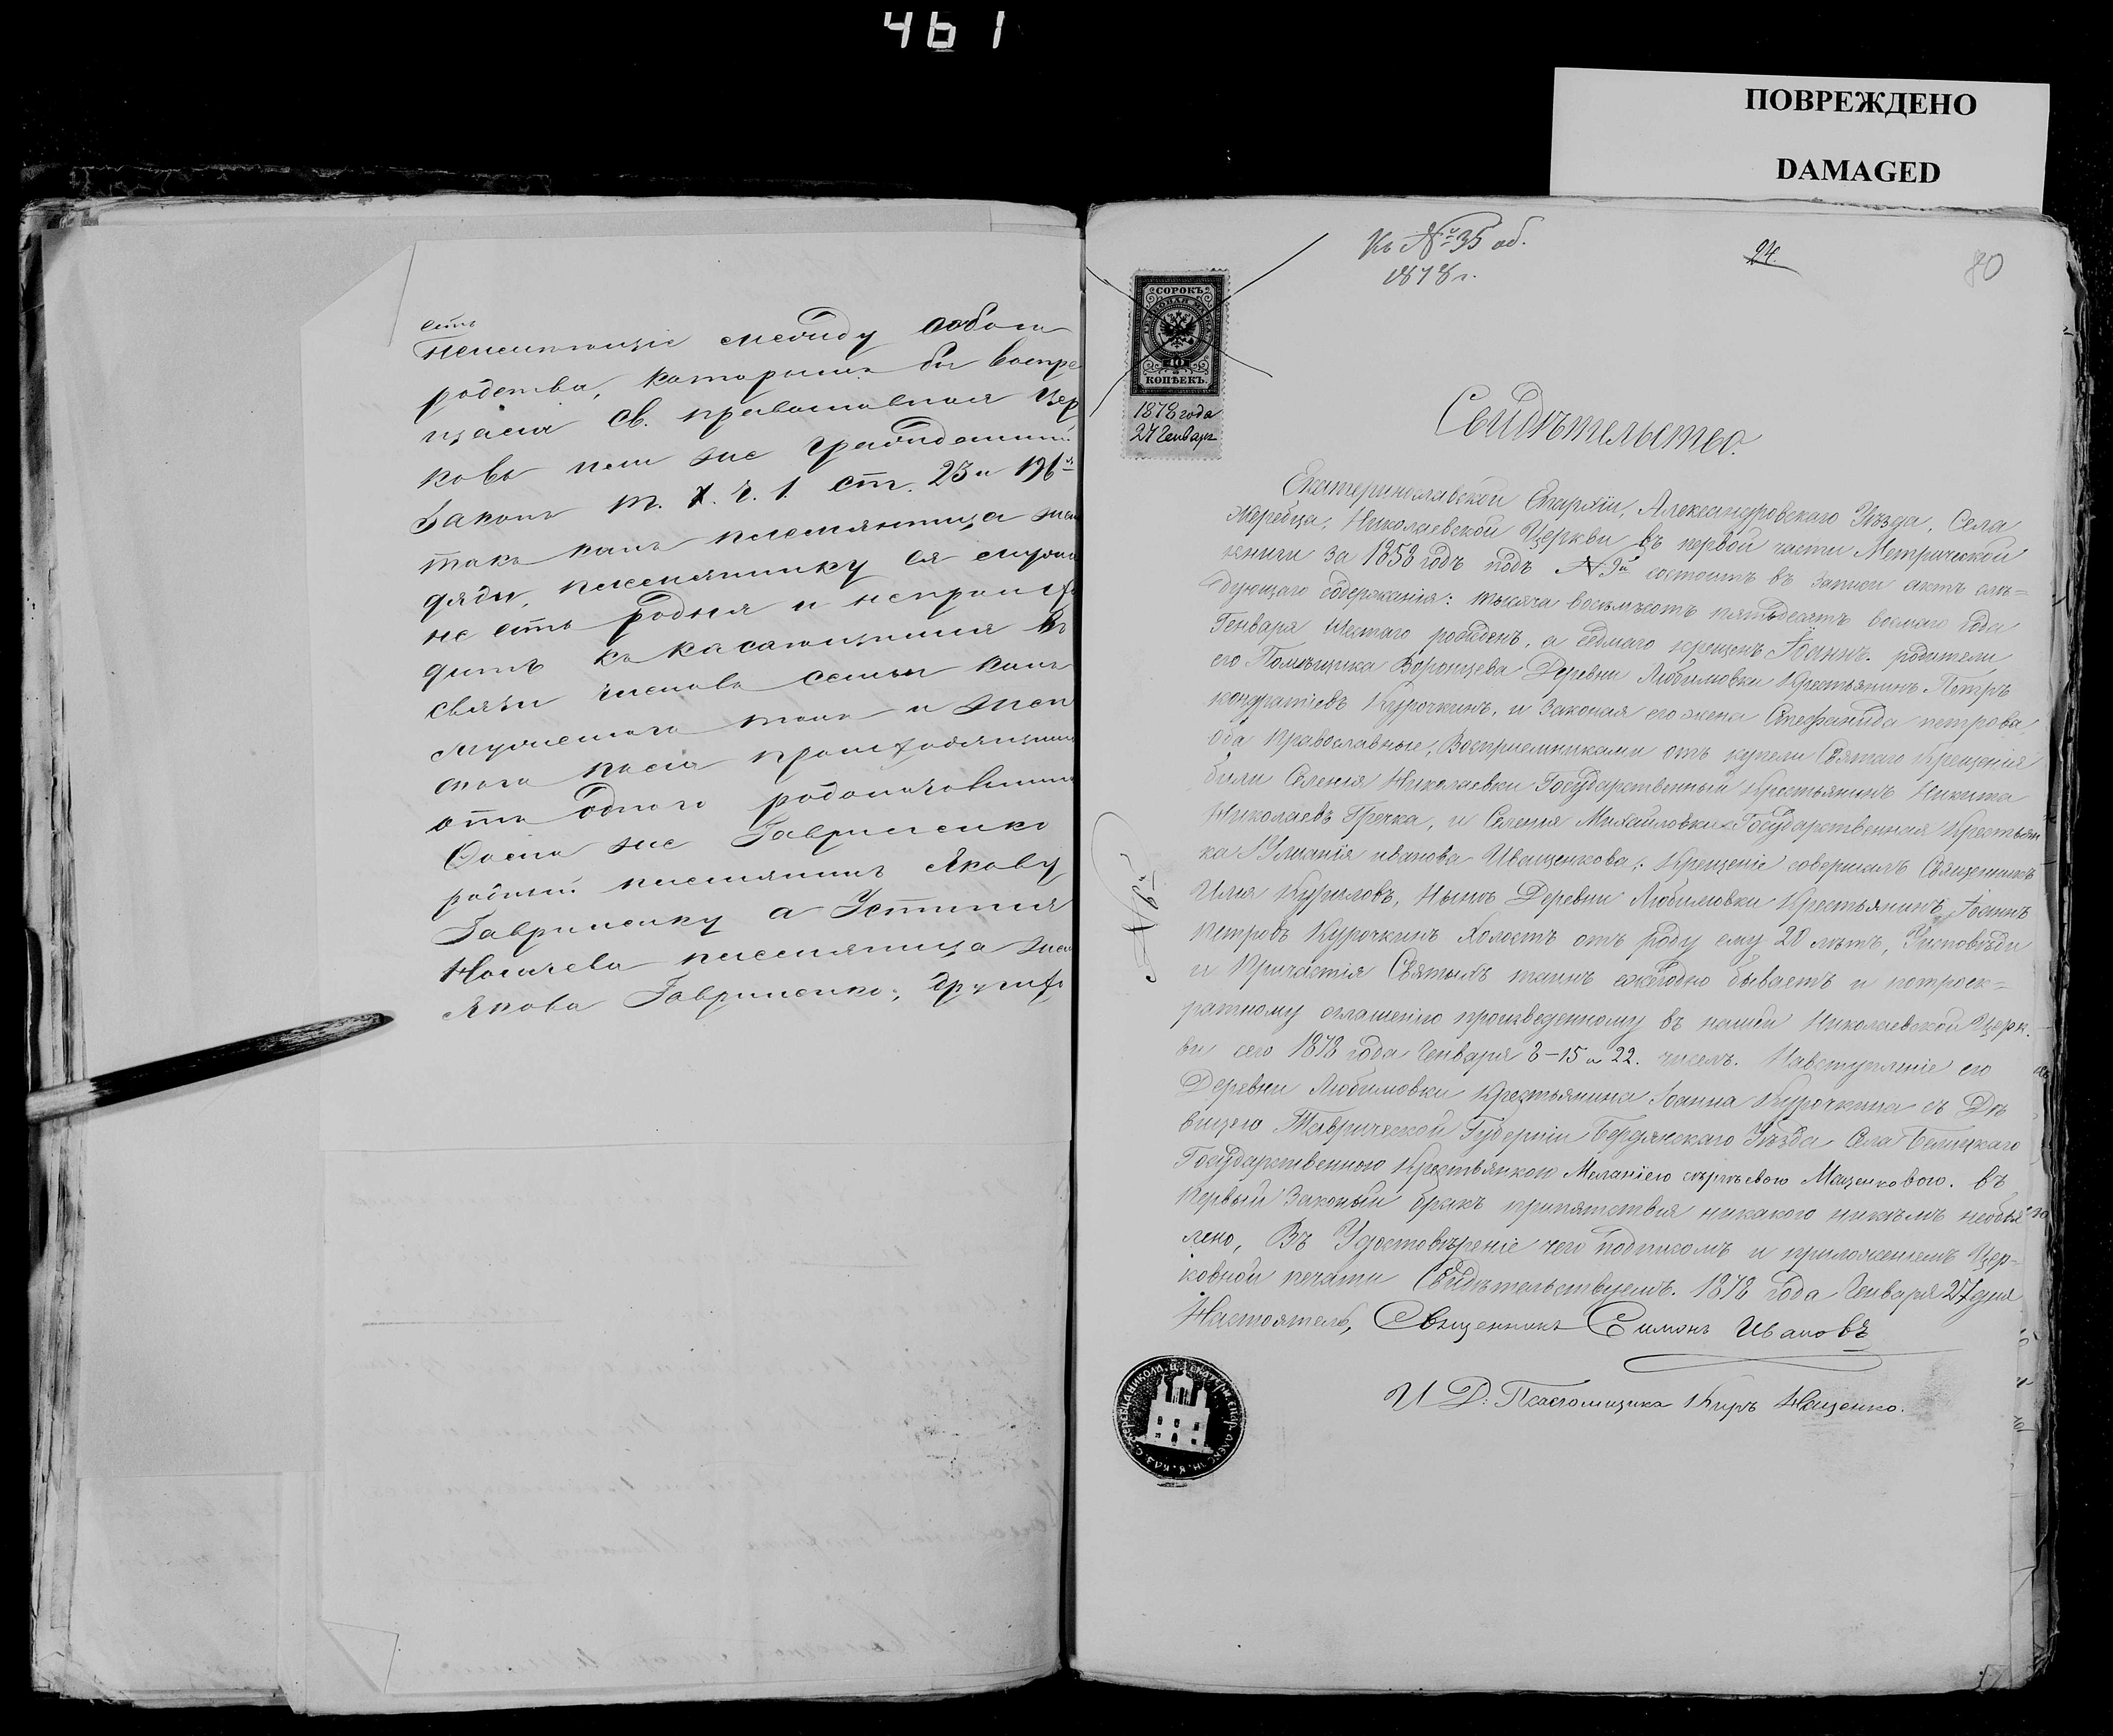 461
ПОВРЕЖДЕНО
DAMAGED
есть
между собою
родства, которымъ бы воспре
щасмя св. православная Цер
ковь или же гражданский
Законъ т. X. ч. 1. ст. 23 и 196
такъ какъ племянница жены
дяди, племяннику ея мужа
не есть родня и
дитъ къ касающимся въ
связи членовъ семьи какъ
мужескаго такъ и жен
скаго пола
отъ одного
Фома же Гавриленко
родной племянникъ Якову
Гавриленку а Устинія
Ногачева племянница жены
Якова Гавриленко, другихъ
Къ № 35 об.
1878 г.
24.
80
СОРОКЪ
ГЕРБОВАЯ МАРКА
40
КОПѢЕКЪ.
1878 года
27 Генваря
Свидѣтельство.
Екатеринославской Епархіи, Александровскаго Уѣзда, Села
Жеребца, Николаевской Церкви въ первой части Метрической
книги за 1858 годъ подъ № состоитъ въ записи актъ слѣ=
дующаго содержанія: тысяча восемьсотъ пятьдесятъ восмаго года
Генваря Шестаго рожденъ, а седмаго крещенъ Іоаннъ. родители
его Помѣщика Воронцева Деревни Любимовки Крестьянинъ Петръ
кондратіевъ Курочкинъ, и Законая его жена Стефанида петрова,
оба православные, Восприемниками отъ купели Святаго Крещенія
были Селенія Николаевки Государственный Крестьянинъ Никита
Николаевъ Гречка, и Селенія Михайловки Государственная Крестьян
ка Уліанія иванова Иващенкова; Крещеніе совершалъ Священникъ
Илія Куриловъ, Нынѣ Деревни Любимовки Крестьянинъ Іоаннъ
Петровъ Курочкинъ Холостъ отъ роду ему 20 лѣтъ, Уисповѣди
и Причастія Святыхъ таинъ ежегодно бываетъ и потроек=
ратному оглашенію произведенному въ нашей Николаевской Церк.
ви сего 1878 года Генваря 8-15 и 22. чиселъ. Навступленіе его
Деревни Любимовки Крестьянина Іоанна Курочкина съ Дѣ
вицею Таврической Губерніи Бердянскаго Уѣзда Села
Государственною Крестьянкою Меланіею Мащенковою. въ
Первый Законый бракъ припятствія никакого никѣмъ необъя
лено, Въ Удостовѣреніе чего подписомъ и приложеніемъ Цер=
ковной печати Свидѣтельствуемъ. 1878 года Генваря 27 дня
Настоятель, Священникъ Симонъ Ивановъ
И Д: Псаломщика Киръ Нащенко.